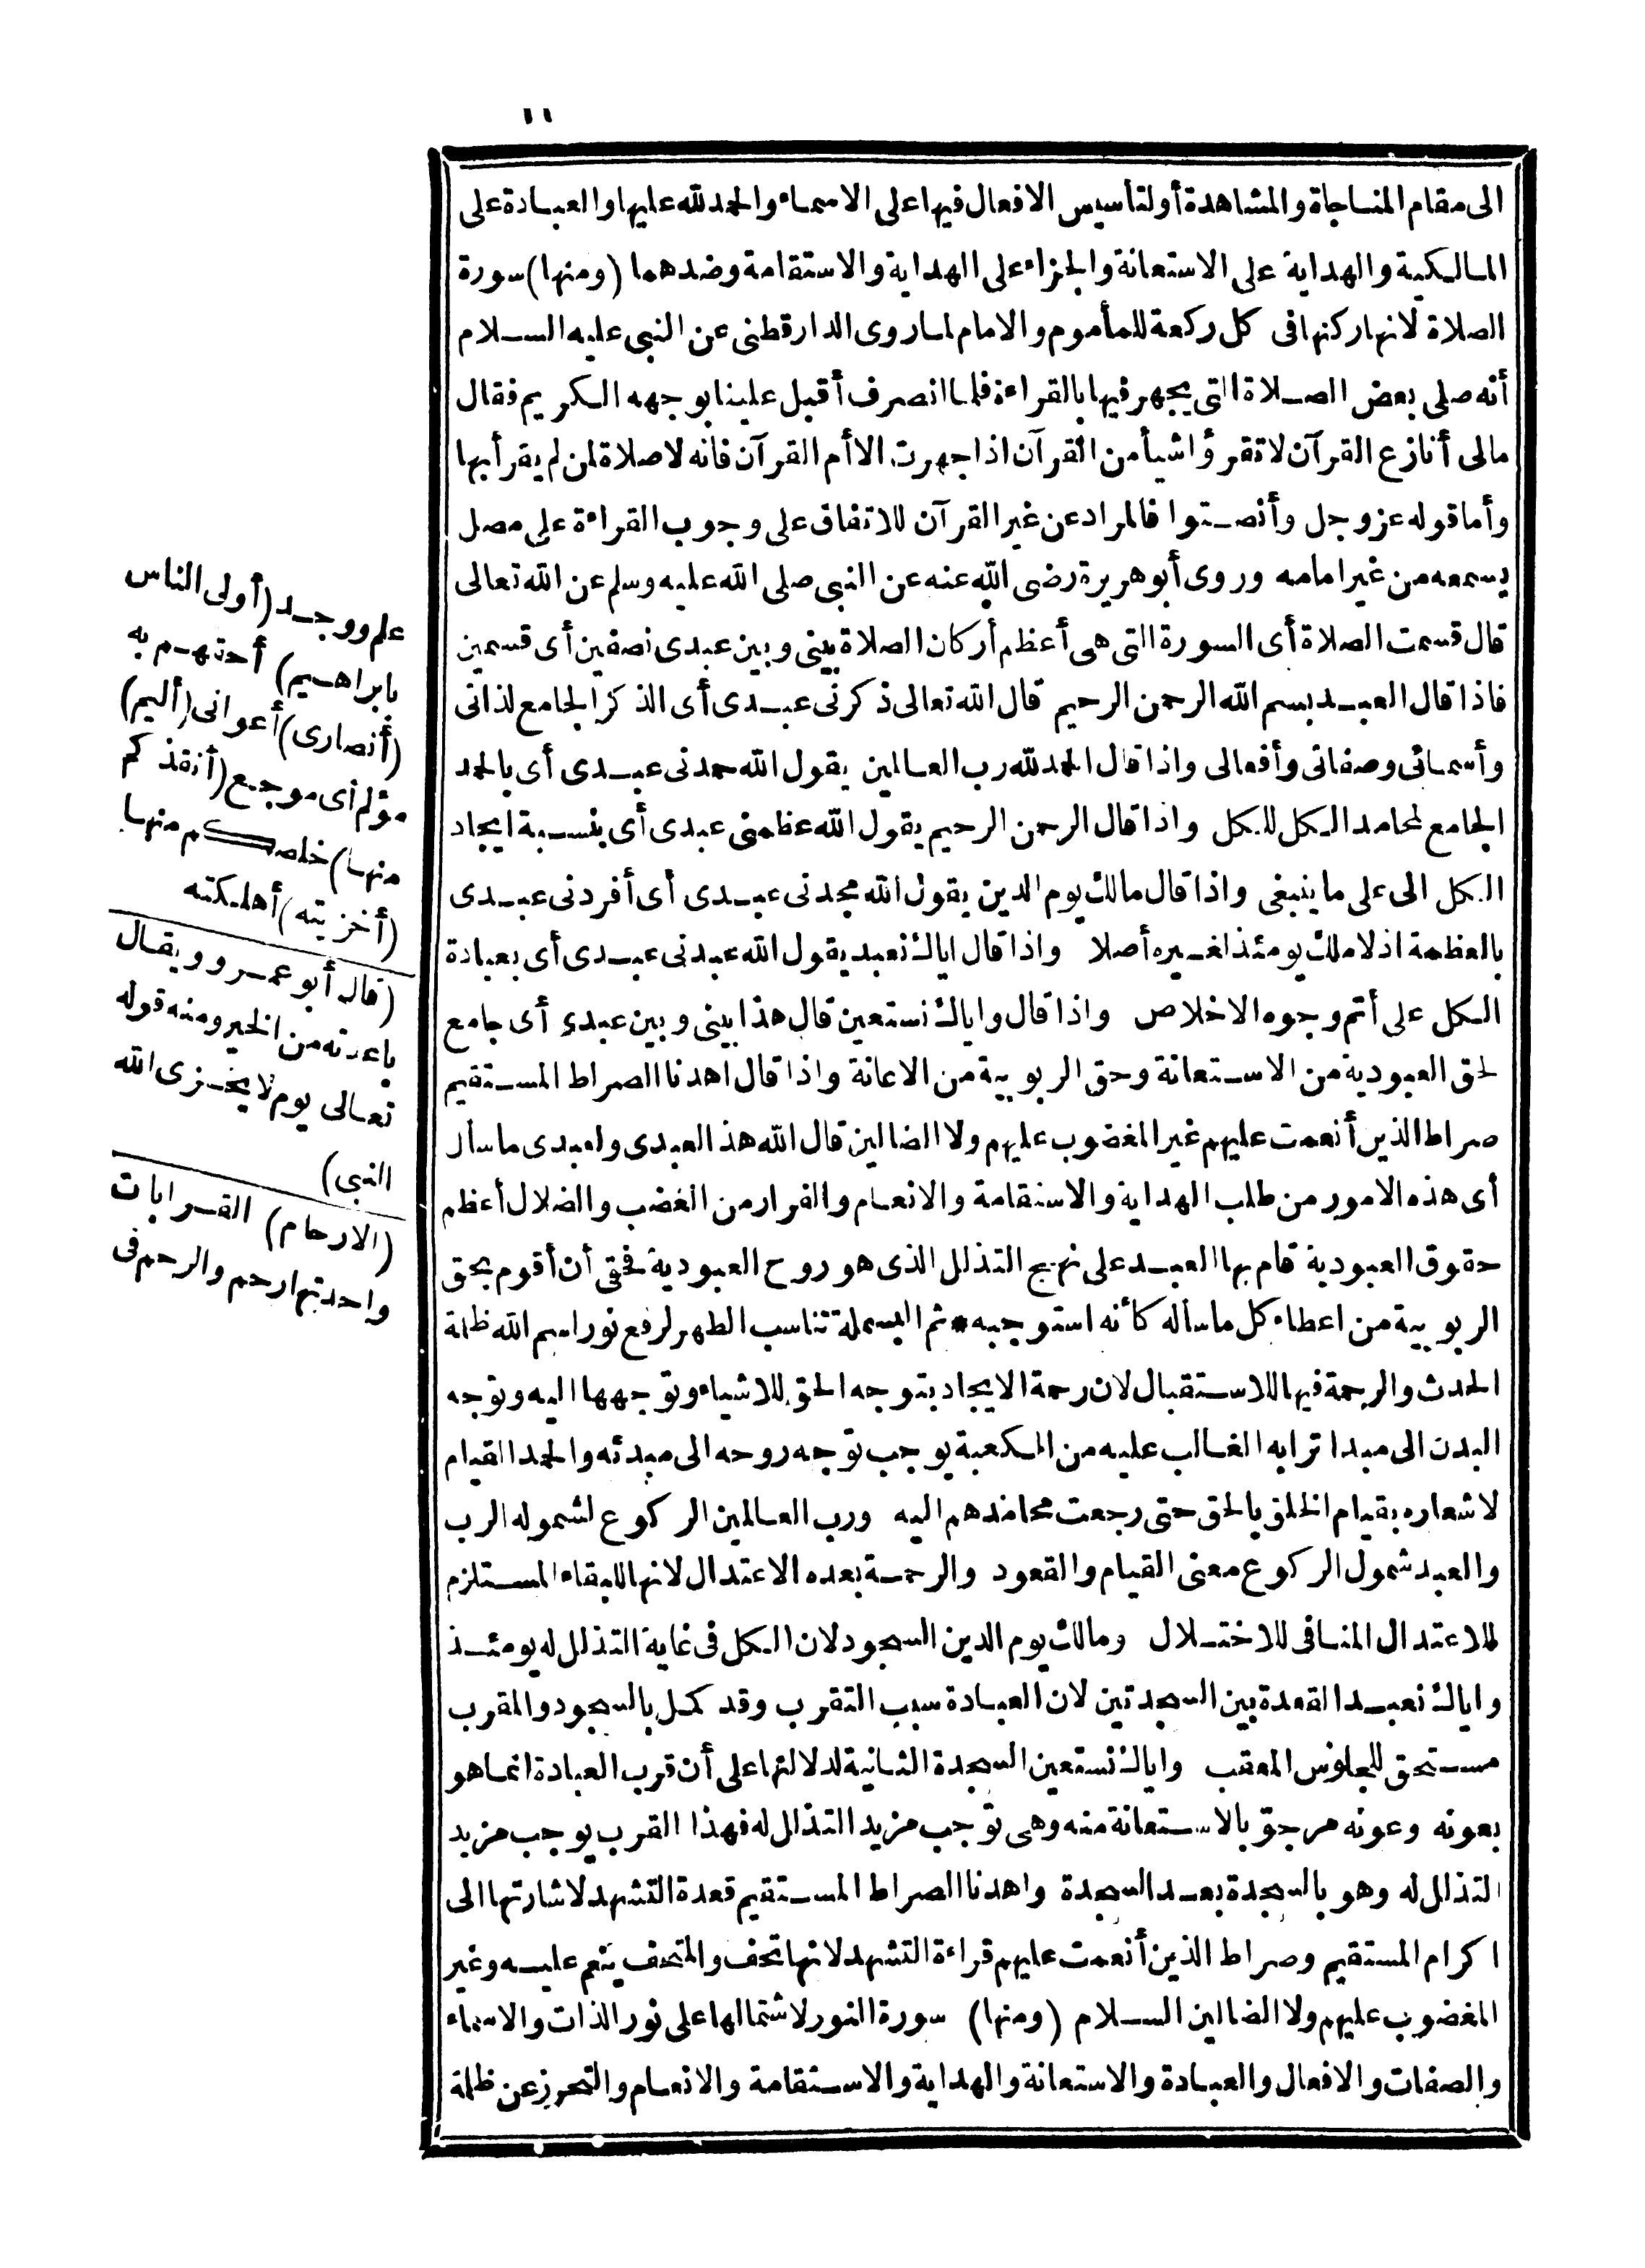 ١١
الى مقام المناجاة والمشاهدة أولتأسيس الافعال فيها على الاسماء والحمد لله عليها والعبادة على
المالكية والهداية على الاستعانة والجزاء على الهداية والاستقامة وضدهما (ومنها) سورة
الصلاة لانها ركنها فى كل ركعة للمأموم والامام لما روى الدارقطنى عن النبى عليه السلام
أنه صلى بعض الصلاة التى يجهر فيها بالقراءة فلما انصرف أقبل علينا بوجهه الكريم فقال
مالى أنازع القرآن لا تقرؤا شيأ من القرآن اذا جهرت الا أم القرآن فانه لا صلاة لمن لم يقرأ بها
وأما قوله عز وجل وأنصتوا فالمراد عن غير القرآن للاتفاق على وجوب القراءة على مصل
يسمعه من غير امامه وروى أبو هريرة رضى الله عنه عن النبى صلى الله عليه وسلم عن الله تعالى
قال قسمت الصلاة أى السورة التى هى أعظم أركان الصلاة بينى وبين عبدى نصفين أى قسمين
فاذا قال العبد بسم الله الرحمن الرحيم قال الله تعالى ذكرنى عبدى أى الذكر الجامع لذاتى
وأسمائى وصفاتى وأفعالى واذا قال الحمد لله رب العالمين يقول الله حمدنى عبدى أى بالحمد
الجامع لمحامد الكل للكل واذا قال الرحمن الرحيم يقول الله عظمنى عبدى أى بنسبة ايجاد
الكل الى على ما ينبغى واذا قال مالك يوم الدين يقول الله مجدنى عبدى أى أفردنى عبدى
بالعظمة اذ لا ملك يومئذ لغيره أصلا واذا قال اياك نعبد يقول الله عبدنى عبدى أى بعبادة
الكل على أتم وجوه الاخلاص واذا قال واياك نستعين قال هذا بينى وبين عبدى أى جامع
لحق العبودية من الاستعانة وحق الربوبية من الاعانة واذا قال اهدنا الصراط المستقيم
صراط الذين أنعمت عليهم غير المغضوب عليهم ولا الضالين قال الله هذا لعبدى ولعبدى ما سأل
أى هذه الامور من طلب الهداية والاستقامة والانعام والفرار من الغضب والضلال أعظم
حقوق العبودية قام بها العبد على نهج التذلل الذى هو روح العبودية فحق أن أقوم بحق
الربوبية من اعطاء كل ما سأله كأنه استوجبه * ثم البسملة تناسب الطهر لرفع نور اسم الله ظلمة
الحدث والرحمة فيها للاستقبال لان رحمة الايجاد بتوجه الحق للاشياء وتوجهها اليه وتوجه
البدن الى مبدا ترابه الغالب عليه من الكعبة يوجب توجه روحه الى مبدئه والحمد القيام
لاشعاره بقيام الخلق بالحق حتى رجعت محامدهم اليه ورب العالمين الركوع لشموله الرب
والعبد شمول الركوع معنى القيام والقعود والرحمة بعده الاعتدال لانها للبقاء المستلزم
للاعتدال المنافى للاختلال ومالك يوم الدين السجود لان الكل فى غاية التذلل له يومئذ
واياك نعبد القعدة بين السجدتين لان العبادة سبب التقرب وقد كمل بالسجود والمقرب
مستحق للجلوس المعقب واياك نستعين السجدة الثانية لدلالتها على أن قرب العبادة انما هو
بعونه وعونه مرجوّ بالاستعانة منه وهى توجب مزيد التذلل له فهذا القرب يوجب مزيد
التذلل له وهو بالسجدة بعد السجدة واهدنا الصراط المستقيم قعدة التشهد لاشارتها الى
اكرام المستقيم وصراط الذين أنعمت عليهم قراءة التشهد لانها تحف والمتحف ينعم عليه وغير
المغضوب عليهم ولا الضالين السلام (ومنها) سورة النور لاشتمالها على نور الذات والاسماء
والصفات والافعال والعبادة والاستعانة والهداية والاستقامة والانعام والتحرز عن ظلمة
علم ووجد (أولى الناس
بابراهيم) أحقهم به
(أنصارى) أعوانى (أليم)
مؤلم أى موجع (أنقذكم
منها) خلصكم منها
(أخزيته) أهلكته
(قال أبو عمرو ويقال
باعدته من الخير ومنه قوله
تعالى يوم لا يخزى الله
النبى)
(الارحام) القرابات
واحدتها رحم والرحم فى